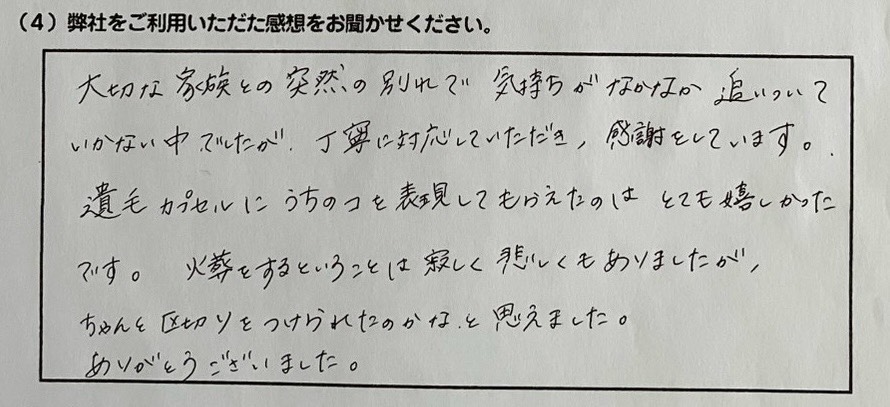 （4）弊社をご利用いただた感想をお聞かせください。
大切な家族との突然の別れで 気持ちがなかなか追いついて
いかない中でしたが、丁寧に対応していただき、感謝をしています。
遺毛カプセルにうちのコを表現してもらえたのはとても嬉しかった
です。 火葬をするということは寂しく悲しくもありましたが、
ちゃんと区切りをつけられたのかな、と思えました。
ありがとうございました。